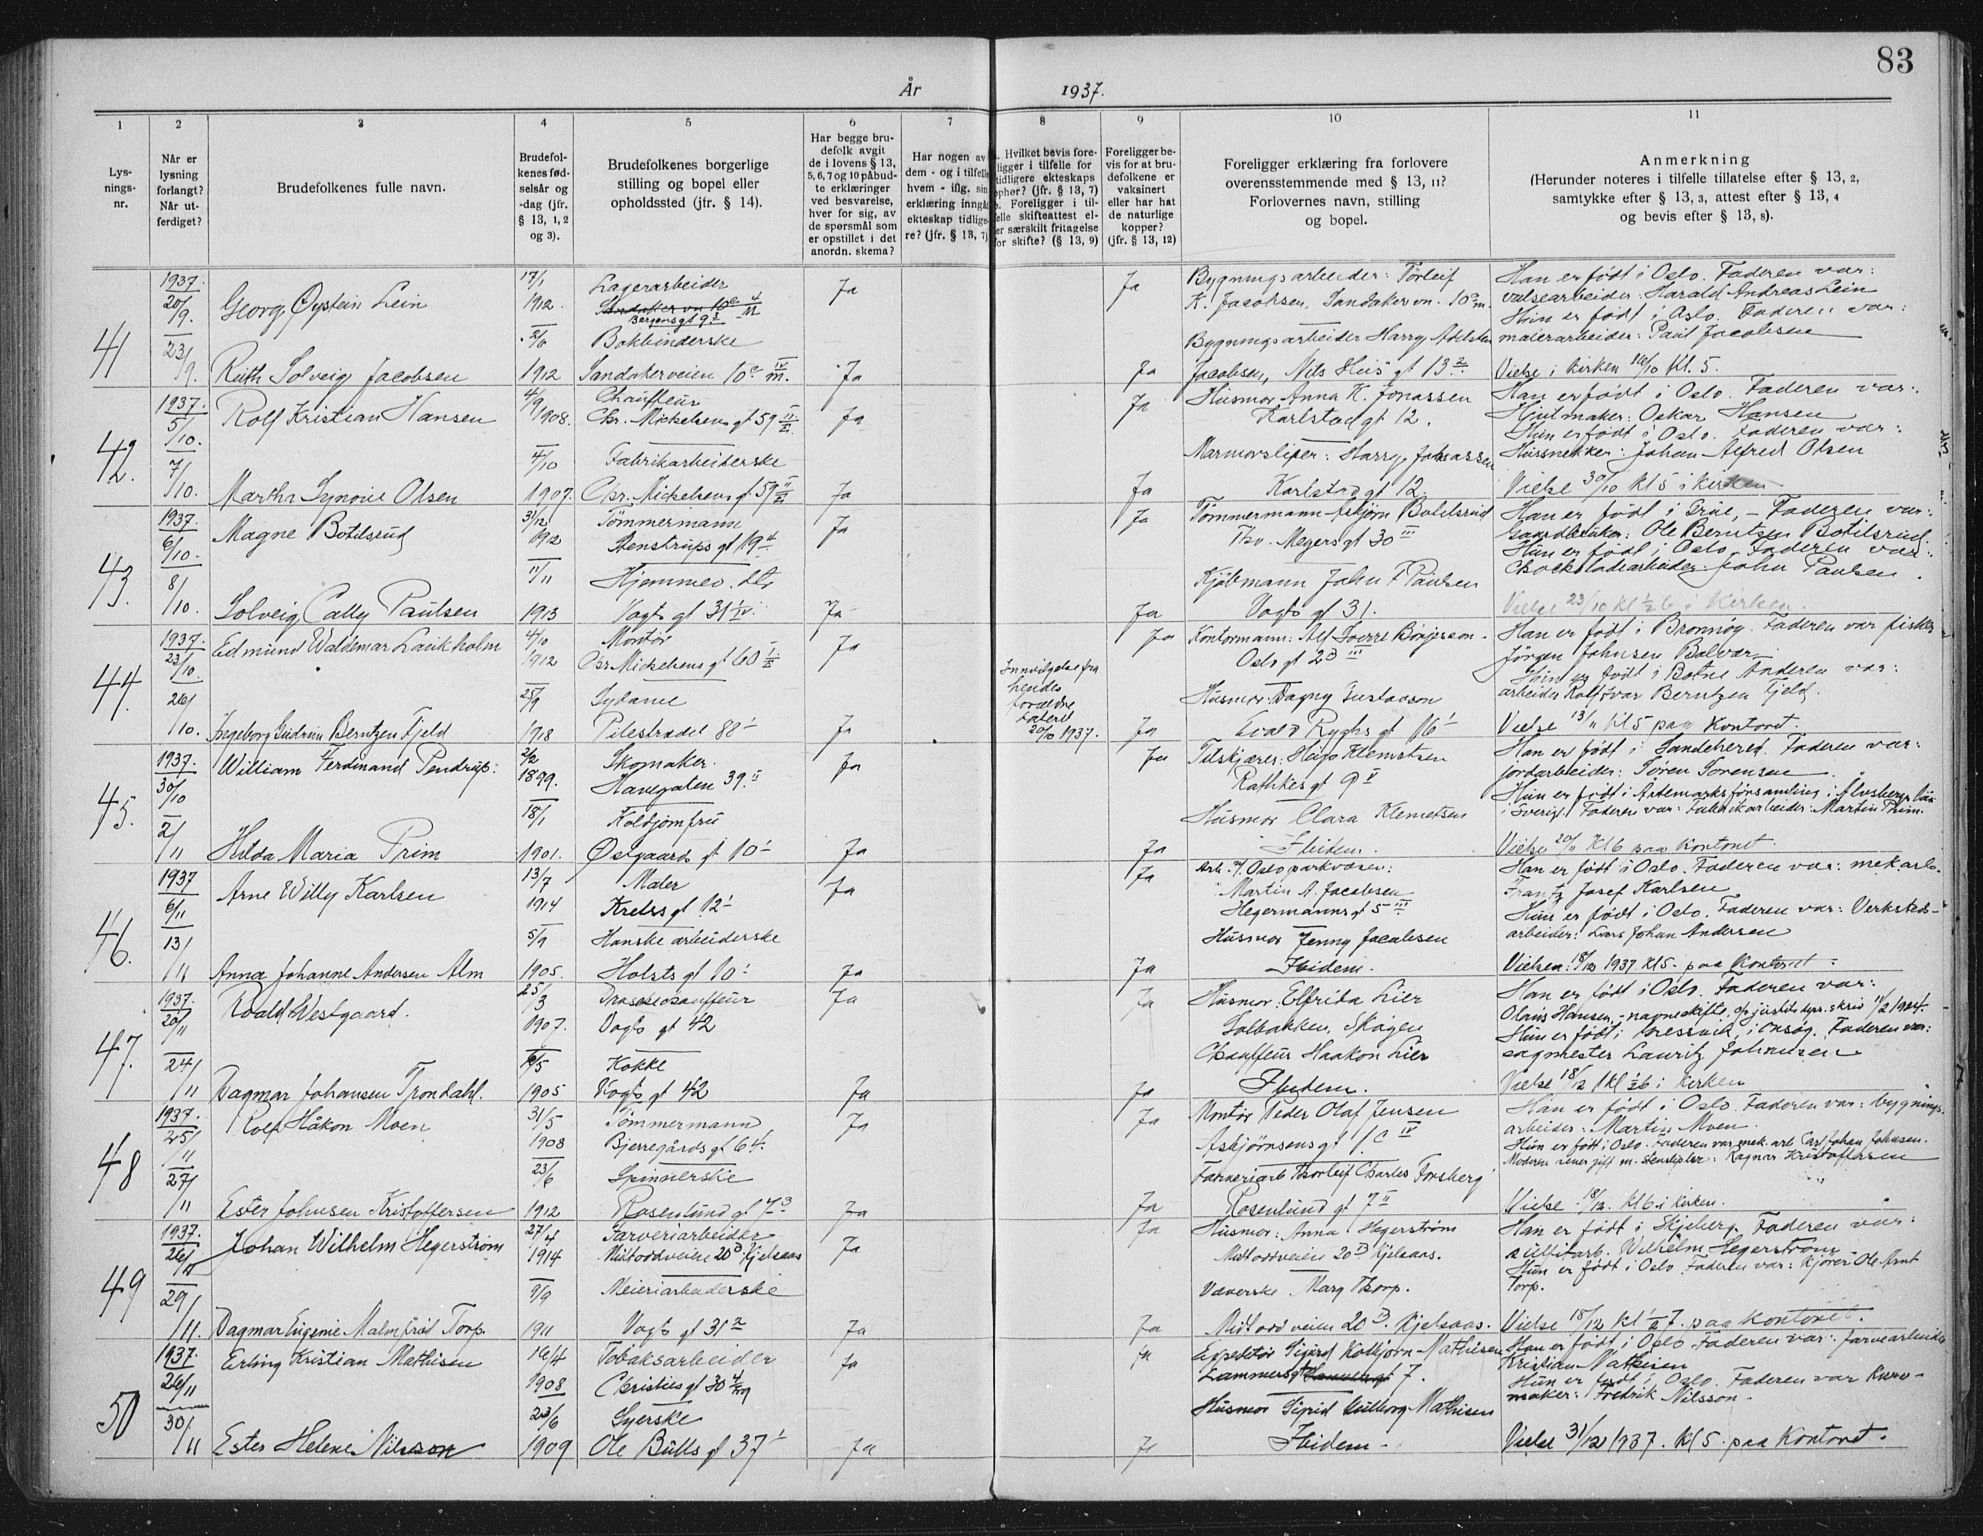 83
År 1937.
1 2 3 4 5 6 7 8 9 10 11
Lys-
nings-
nr.
Når er
lysning
forlangt?
Når ut-
ferdiget?
Brudefolkenes fulle navn.
Brudefol-
kenes fød-
selsår og
-dag (jfr.
§ 13, 1, 2
og 3).
Brudefolkenes borgerlige
stilling og bopel eller
opholdssted (jfr. § 14).
Har begge bru-
defolk avgit
de i lovens § 13,
5, 6, 7 og 10 påbud-
te erklæringer
ved besvarelse,
hver for sig, av
de spørsmål som
er opstillet i det
anordn. skema?
Har nogen av
dem - og i tilfelle
hvem - iflg. sin
erklæring inngå
ekteskap tidlige
re? (jfr. § 13, 7)
Hvilket bevis fore-
ligger i tilfelle for
tidligere ekteskaps
ophør? (jfr. § 13, 7)
Foreligger i til-
felle skifteattest el-
er særskilt fritagelse
for skifte? (§ 13, 9)
Foreligger be-
vis for at bru-
defolkene er
vaksinert
eller har hat
de naturlige
kopper?
(jfr. § 13, 12)
Foreligger erklæring fra forlovere
overensstemmende med § 13, 11?
Forlovernes navn, stilling
og bopel.
Anmerkning
(Herunder noteres i tilfelle tillatelse efter § 13, 2,
samtykke efter § 13, 3, attest efter § 13, 4
og bevis efter § 13, 8).
41
1937.
20/9.
23/9.
Georg Øystein Lein
17/1
1912.
Lagerarbeider
Sandakervn 10c 4 M
Bergensgt 9
Ja
Ja
Bygningsarbeider: Torleif
K. Jacobsen, Sandakervn. 10c m.
Han er født i Oslo. Faderen var:
valsearbeider: Harald Andreas Lein
Hun er født i Oslo. Faderen var:
malerarbeider: Paul Jacobsen
Ruth Solveig Jacobsen
1912
Bokbinderske
Sandakerveien 10c IV m.
Ja
Ja
Bygningsarbeider Harry Adelsten
Jacobsen, Nils Hus' gt 13 2.
Vielse i Kirken 16/10 kl. 5.
42.
1937.
5/10.
7/10.
Rolf Kristian Hansen
4/9 1908.
Chauffeur
Chr. Mickelsens gt 59 II
Ja
Ja
Husmor Anna K. Jonassen
Karlstadgt 12.
Han er født i Oslo. Faderen var:
Hjulmaker: Oskar Hansen
Hun er født i Oslo. Faderen var:
Hussnekker: Johan Alfred Olsen
Martha Synøve Olsen
4/10
1907.
Fabrikarbeiderske
Chr. Mickelsens gt 59 II
Ja
Ja
Marmorsliper: Harry Jonassen
Karlstadgt 12
Vielse 30/10 kl 5 i kirken
43.
1937.
6/10.
8/10.
Magne Botilsrud
31/12
1912
Tømmermann
Stenstrups gt 19 4
Ja
Ja
Tømmermann Asbjørn Botilsrud
Thv. Meyers gt 30 III
Han er født i Grue, - Faderen var:
gaardbruker: Ole Berntsen Botilsrud
Hun er født i Oslo. Faderen var:
Chockoladearbeider: John Paulsen.
Solveig Cally Paulsen
11/11
1913
Hjemmev. dtr
Vogts gt 31 IV.
Ja
Ja
Kjøbmann John F Paulsen
Vogts gt 31.
Vielse 23/10 kl ½ 6 i Kirken.
44.
1937.
23/10.
26/10.
Edmund Waldemar Laukholm
4/10
1912
Montør
Chr. Mickelsens gt 60
Ja
Innvilgelse fra
hendes
forældre
dateret
20/10 1937.
Ja
Kontormann: Alf Sverre Børjesson -
Oslo gt 23 III
Han er født i Brønnøy. Faderen var fisker
Jørgen Johnsen Bolvær
Hun er født i Botne. Faderen var:
arbeider Rolf Ivar Berntzen Fjeld.
Ingeborg Gudrun Berntzen Fjeld
25/9
1918
Sydame
Pilestrædet 88 1
Ja
Ja
Husmor: Dagny Gustavson
Evald Ryghs gt 16 1
Vielse 13/11 kl 5 paa Kontoret.
45.
1937.
30/10
2/11
William Ferdinand Pendrup:
2/2
1899.
Skomaker.
Havegaten 39. II
Ja
Ja
Tilskjærer: Hugo Klemetsen
Rathkes gt 9 II
Han er født i Sandeherred. Faderen var:
jordarbeider: Søren Sørensen.
Hun er født i Artemarks församling i Älvsborgs län
i Sverige. Faderen var: Fabrikarbeider: Martin Prim.
Hilda Maria Prim
18/1
1901.
Koldjomfru
Østgaards gt 10 1
Ja
Ja
Husmor Clara Klemetsen
Ibidem.
Vielse 20/11 kl 6 paa Kontoret.
46.
1937
6/11
13/11
Arne Willy Karlsen
13/7
1914
Maler
Krebs gt 12 1
Ja
Ja
Arb. v. Oslo parkvæsen:
Martin A. Jacobsen
Hegermanns gt 5 III
Han er født i Oslo. Faderen var: mek arb.
Frantz Josef Karlsen
Hun er født i Oslo. Faderen var: Verksteds-
arbeider: Lars Johan Andersen
Anna Johanne Andersen Alm
5/9
1905.
Hanskearbeiderske
Holsts gt 10 1
Ja
Ja
Husmor Jenny Jacobsen
Ibidem.
Vielsen: 18/12 1937 kl 5. paa Kontoret.
47.
1937.
20/11
24/11
Roald Westgaard.
25/3
1907.
Drosjechauffeur
Vogts gt 42
Ja
Ja
Husmor: Elfrida Lier
Solbakken, Skøyen
Han er født i Oslo. Faderen var:
Olaus Hansen, - navneskifte, jfr justitsdeps. skriv 11/2 1924.
Hun er født i Gressvik, i Onsøy. Faderen var:
sagmester Lauritz Johansen
Dagmar Johansen Trondahl.
6/5
1905
Kokke
Vogts gt 42
Ja
Ja
Chauffeur Haakon Lier
Ibidem.
Vielse 18/12 kl ½6 i Kirken
48
1937.
25/11
27/11
Rolf Håkon Moen
31/5
1908
Tømmermann
Bjerregårds gt 64.
Ja
Ja
Montør Peder Olaf Jensen
Asbjørnsens gt 1c IV
Han er født i Oslo. Faderen var: bygnings-
arbeider: Martin Moen.
Hun er født i Oslo. Faderen var mek. arb. Carl Johan Johnsen.
Moderen senere gift m. stensliper: Ragnar Kristoffersen
Ester Johnsen Kristoffersen
23/6
1912
Spinnerske
Rosenlund gt 7 3
Ja
Ja
Farveriarb Thorleif Charles Forsberg
Rosenlund gt 7 II
Vielse 18/12. kl 6 i Kirken.
49
1937.
26/11
29/11.
Johan Wilhelm Hegerstrøm
27/4
1914
Farveriarbeider
Midtoddveien 20 D Kjelsaas
Ja
Ja
Husmor: Anna Hegerstrøm
Midtoddveien 20 D Kjelsaas.
Han er født i Skjeberg. Faderen var:
sulfitarb. Wilhelm Hegerstrøm
Hun er født i Oslo. Faderen var: kjører Ole Arnt
Torp.
Dagmar Eugenie Malmfrid Torp
9/9
1911
Meieriarbeiderske
Vogts gt 31 2
Ja
Ja
Væverske Mary Thorp.
Midtoddveien 20 D. Kjelsaas.
Vielse 18/12 kl ½ 7. paa Kontoret.
50
1937.
26/11
30/11
Erling Kristian Mathisen
16/4
1908
Tobaksarbeider
Christies gt 30 4
Ja
Ja
Expeditør Sigurd Kolbjørn Mathisen
Lammersgt 7.
Han er født i Oslo. Faderen var: farvearbeider
Kristian Mathisen
Hun er født i Oslo. Faderen var kurv-
maker: Fredrik Nilsson -
Ester Helene Nilsson
23/6
1909
Syerske
Ole Bulls gt 37 1
Ja
Ja
Husmor Sigrid Mathisen
Ibidem -
Vielse 31/12 1937. kl 5. paa Kontoret.